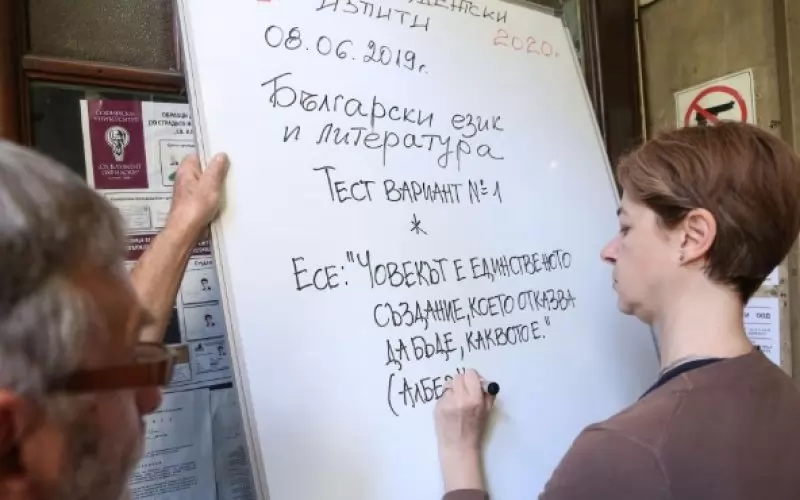 ДЕНТСКИ
ИЗПИТИ
2020.
08.06.2019г.
Български език
и литература
ТЕСТ ВАРИАНТ №1
*
ЕСЕ: "ЧОВЕКЪТ Е ЕДИНСТВЕНОТО
СЪЗДАНИЕ, КОЕТО ОТКАЗВА
ДА БЪДЕ, КАКВОТО Е."
(АЛБЕ
СОФИЙСКИ
УНИВЕРСИТЕТ